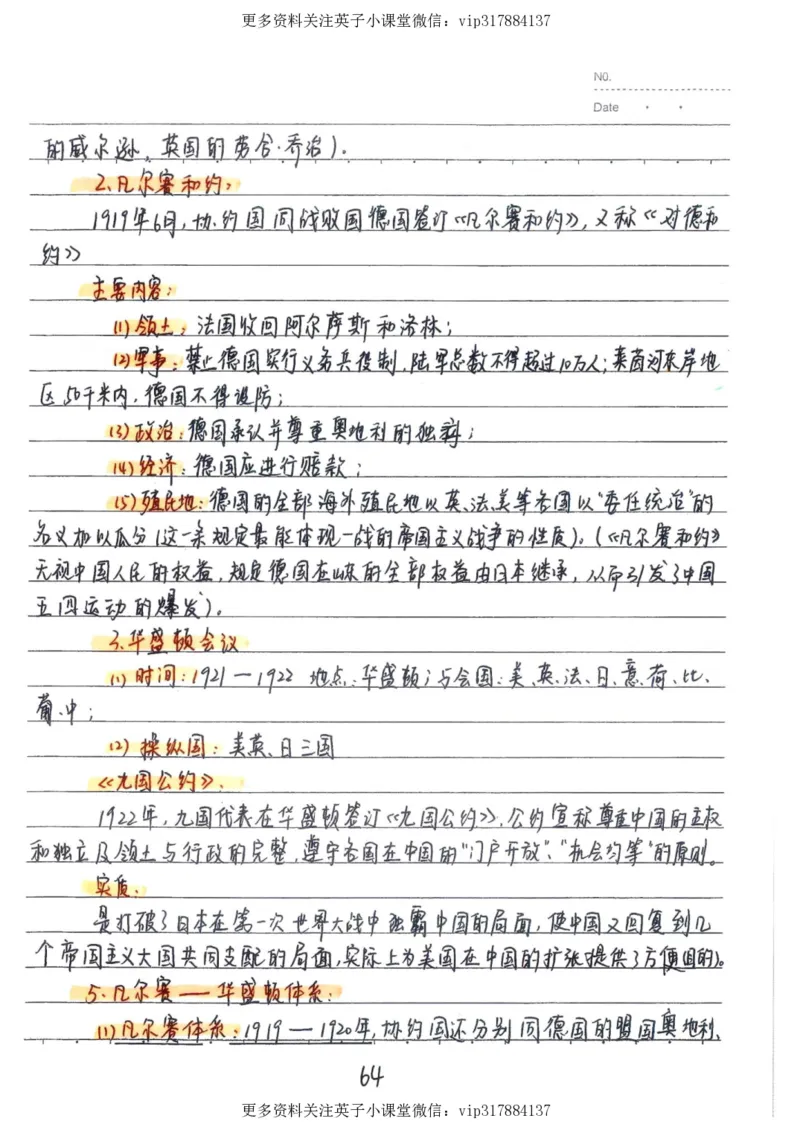 更多资料关注英子小课堂微信：vip317884137
No.
Date
的威尔逊、英国的劳合·乔治）.
2.凡尔赛和约：
1919年6月，协约国同战败国德国签订《凡尔赛和约》，又称《对德和
约》
主要内容：
(1)领土：法国收回阿尔萨斯和洛林；
(2)军事：禁止德国实行义务兵役制，陆军总数不得超过10万人；莱茵河东岸地
区50千米内，德国不得设防；
(3)政治：德国承认并尊重奥地利的独立；
(4)经济：德国应进行赔款；
(5)殖民地：德国的全部海外殖民地以英、法、美等各国以“委任统治”的
名义加以瓜分(这一条规定最能体现一战的帝国主义战争的性质)。(《凡尔赛和约》
无视中国人民的权益，规定德国在山东的全部权益由日本继承，从而引发了中国
五四运动的爆发)。
3.华盛顿会议
(1)时间：1921—1922 地点：华盛顿；与会国：美、英、法、日、意、荷、比、
葡、中；
(2)操纵国：美英、日三国
《九国公约》.
1922年，九国代表在华盛顿签订《九国公约》.公约宣称尊重中国的主权
和独立及领土与行政的完整，遵守各国在中国的“门户开放”、“机会均等”的原则。
实质：
是打破了日本在第一次世界大战中独霸中国的局面，使中国又回复到几
个帝国主义大国共同支配的局面，实际上为美国在中国的扩张提供了方便目的)。
5.凡尔赛——华盛顿体系：
(1)凡尔赛体系：1919—1920年，协约国还分别同德国的盟国奥地利、
64
更多资料关注英子小课堂微信：vip317884137